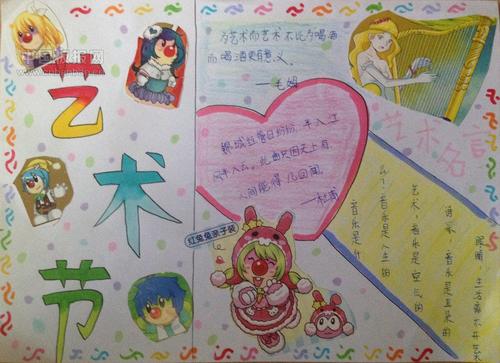 艺术节
为艺术而艺术 不比为喝酒
而喝酒更有意义。
——毛姆
锦城丝管日纷纷，半入江
风半入云。此曲只因天上有
人间能得几回闻。
——杜甫
红兔兔亲子装
艺术名言
眼睛，生活离不开
语言，音乐是耳朵的
艺术，音乐是空气的
么！音乐是人生的
音乐是什